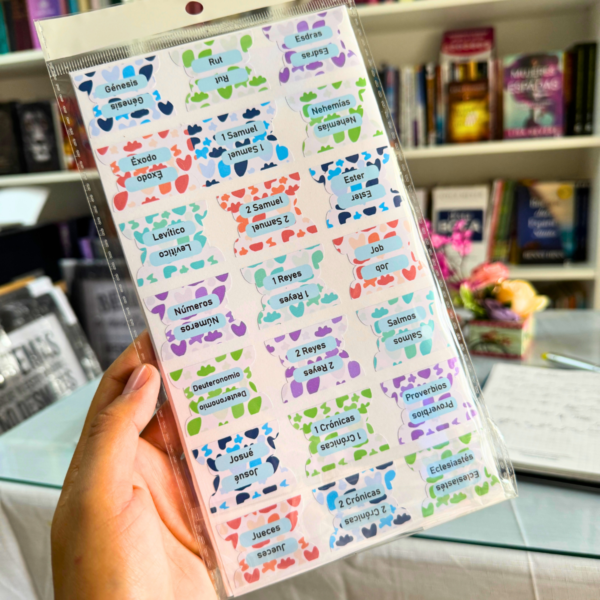 Génesis
Génesis
Éxodo
Éxodo
Levítico
Levítico
Números
Números
Deuteronomio
Deuteronomio
Josué
Josué
Jueces
Jueces
Rut
Rut
1 Samuel
1 Samuel
2 Samuel
2 Samuel
1 Reyes
1 Reyes
2 Reyes
2 Reyes
1 Crónicas
1 Crónicas
2 Crónicas
2 Crónicas
Esdras
Esdras
Nehemías
Nehemías
Ester
Ester
Job
Job
Salmos
Salmos
Proverbios
Proverbios
Eclesiastés
Eclesiastés